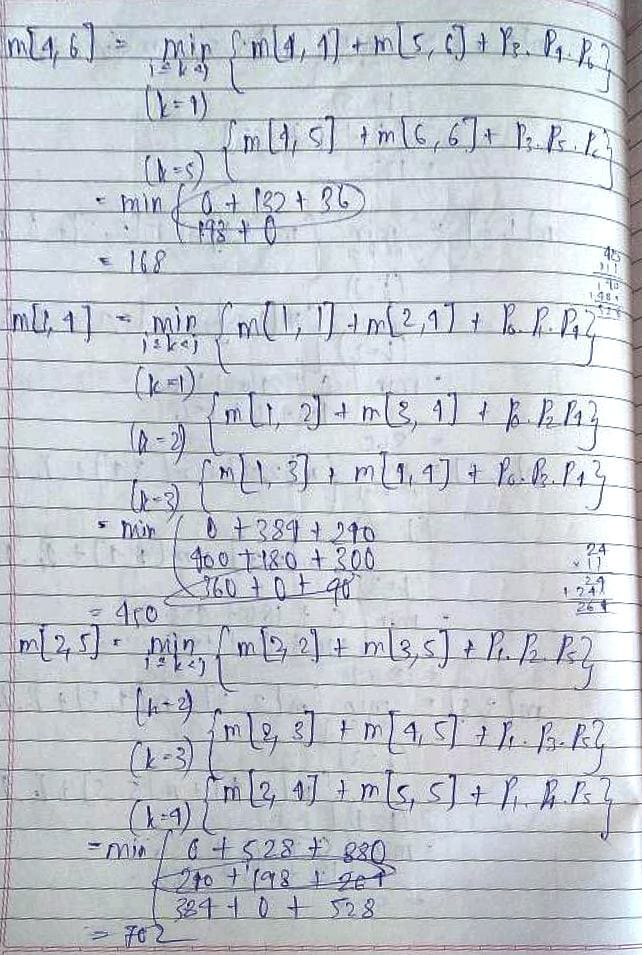 m[4,6] = min { m[4,4] + m[5,6] + P3. P4. P6 }
i≤k<j
(k=4)
{ m[4,5] + m[6,6] + P3. P5. P6 }
(k=5)
= min { 0 + 132 + 36
198 + 0
= 168
m[1,4] = min { m[1,1] + m[2,4] + P0. P1. P4 }
i≤k<j
(k=1)
{ m[1,2] + m[3,4] + P0. P2 P4 }
(k=2)
{ m[1,3] + m[4,4] + P0. P3. P4 }
(k=3)
= min { 0 + 384 + 240
400 + 180 + 300
360 + 0 + 90
= 450
24
× 11
24
24×
264
m[2,5] = min { m[2,2] + m[3,5] + P1. P2. P5 }
i≤k<j
(k=2)
{ m[2,3] + m[4,5] + P1. P3. P5 }
(k=3)
{ m[2,4] + m[5,5] + P1. P4. P5 }
(k=4)
= min { 0 + 528 + 880
240 + 198 + 264
384 + 0 + 528
= 702